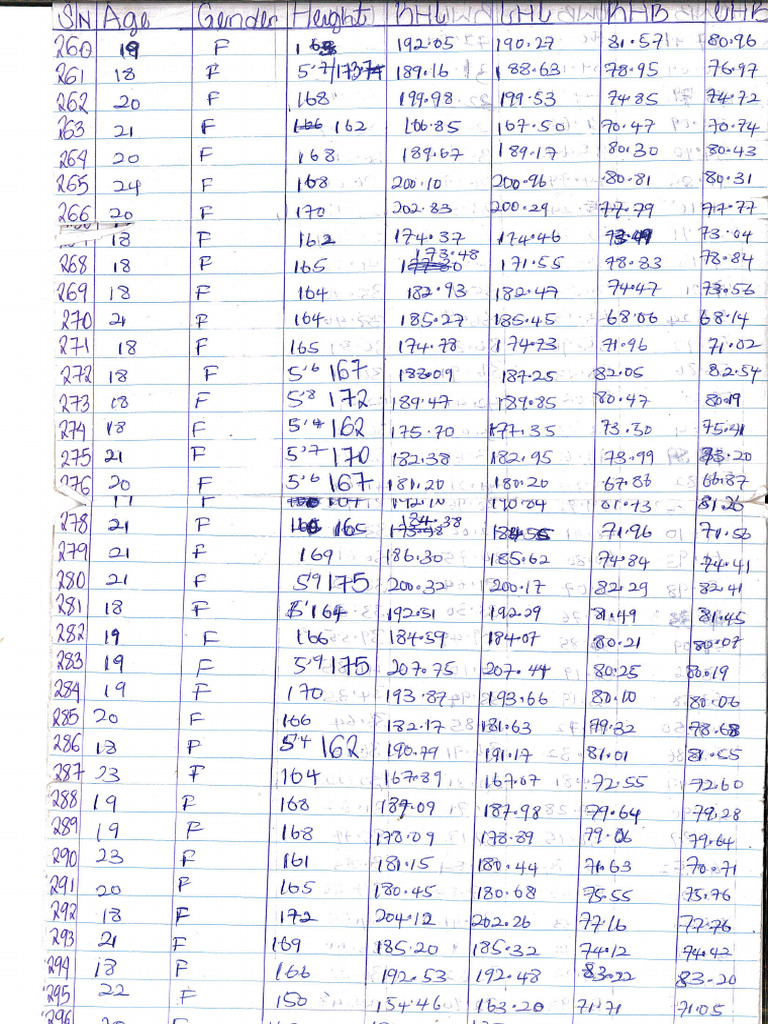 SN Age Gender Height RHL LHL RHB LHB
260 19 F 168 192.05 190.27 81.57 80.96
261 18 F 5'7/173 189.16 188.63 78.95 76.97
262 20 F 168 199.98 199.53 74.85 74.72
263 21 F 166 162 166.85 167.50 70.47 70.74
264 20 F 168 189.67 189.17 80.30 80.43
265 24 F 168 200.10 200.96 80.81 80.31
266 20 F 170 202.83 200.29 77.79 77.77
18 F 162 174.37 174.46 73.49 73.04
268 18 F 165 173.48 171.55 78.83 78.84
269 18 F 164 182.93 182.47 74.47 73.56
270 21 F 164 185.27 185.45 68.06 68.14
271 18 F 165 174.78 174.73 71.96 71.02
272 18 F 5'6 167 183.09 187.25 82.05 82.54
273 18 F 5'8 172 189.47 189.85 80.47 80.19
274 18 F 5'4 162 175.70 177.35 73.30 75.41
275 21 F 5'7 170 182.38 182.95 73.99 73.20
276 20 F 5'6 167 181.20 180.20 67.86 66.87
F 81.26
278 21 F 165 184.38 184.56 71.96 71.56
279 21 F 169 186.30 185.62 74.84 74.41
280 21 F 5'9 175 200.32 200.17 82.29 82.41
281 18 F 5' 164 192.51 192.29 81.49 81.45
282 19 F 166 184.59 184.07 80.21 80.07
283 19 F 5'9 175 207.75 207.44 80.25 80.19
284 19 F 170 193.87 193.66 80.10 80.06
285 20 F 166 182.17 181.63 79.32 78.68
286 18 F 5'4 162 190.79 191.17 81.01 81.55
287 23 F 164 167.89 167.07 72.55 72.60
288 19 F 168 189.09 187.98 79.64 79.28
289 19 F 168 178.09 178.89 79.06 79.64
290 23 F 161 181.15 180.44 71.63 70.71
291 20 F 165 180.45 180.68 75.55 75.76
292 18 F 172 204.12 202.26 77.16 77.76
293 21 F 169 185.20 185.32 74.12 74.42
294 18 F 166 192.53 192.48 83.22 83.20
295 22 F 150 154.46 163.20 71.71 71.05
296